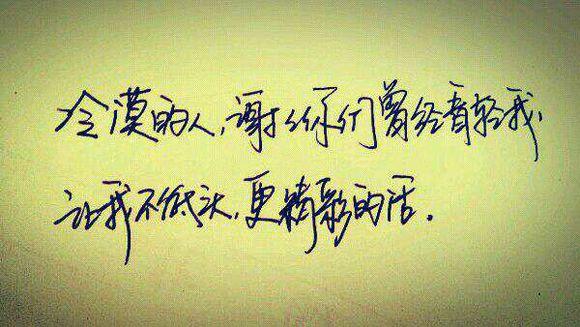 冷漠的人，谢谢你们曾经看轻我，
让我不低头，更精彩的活．